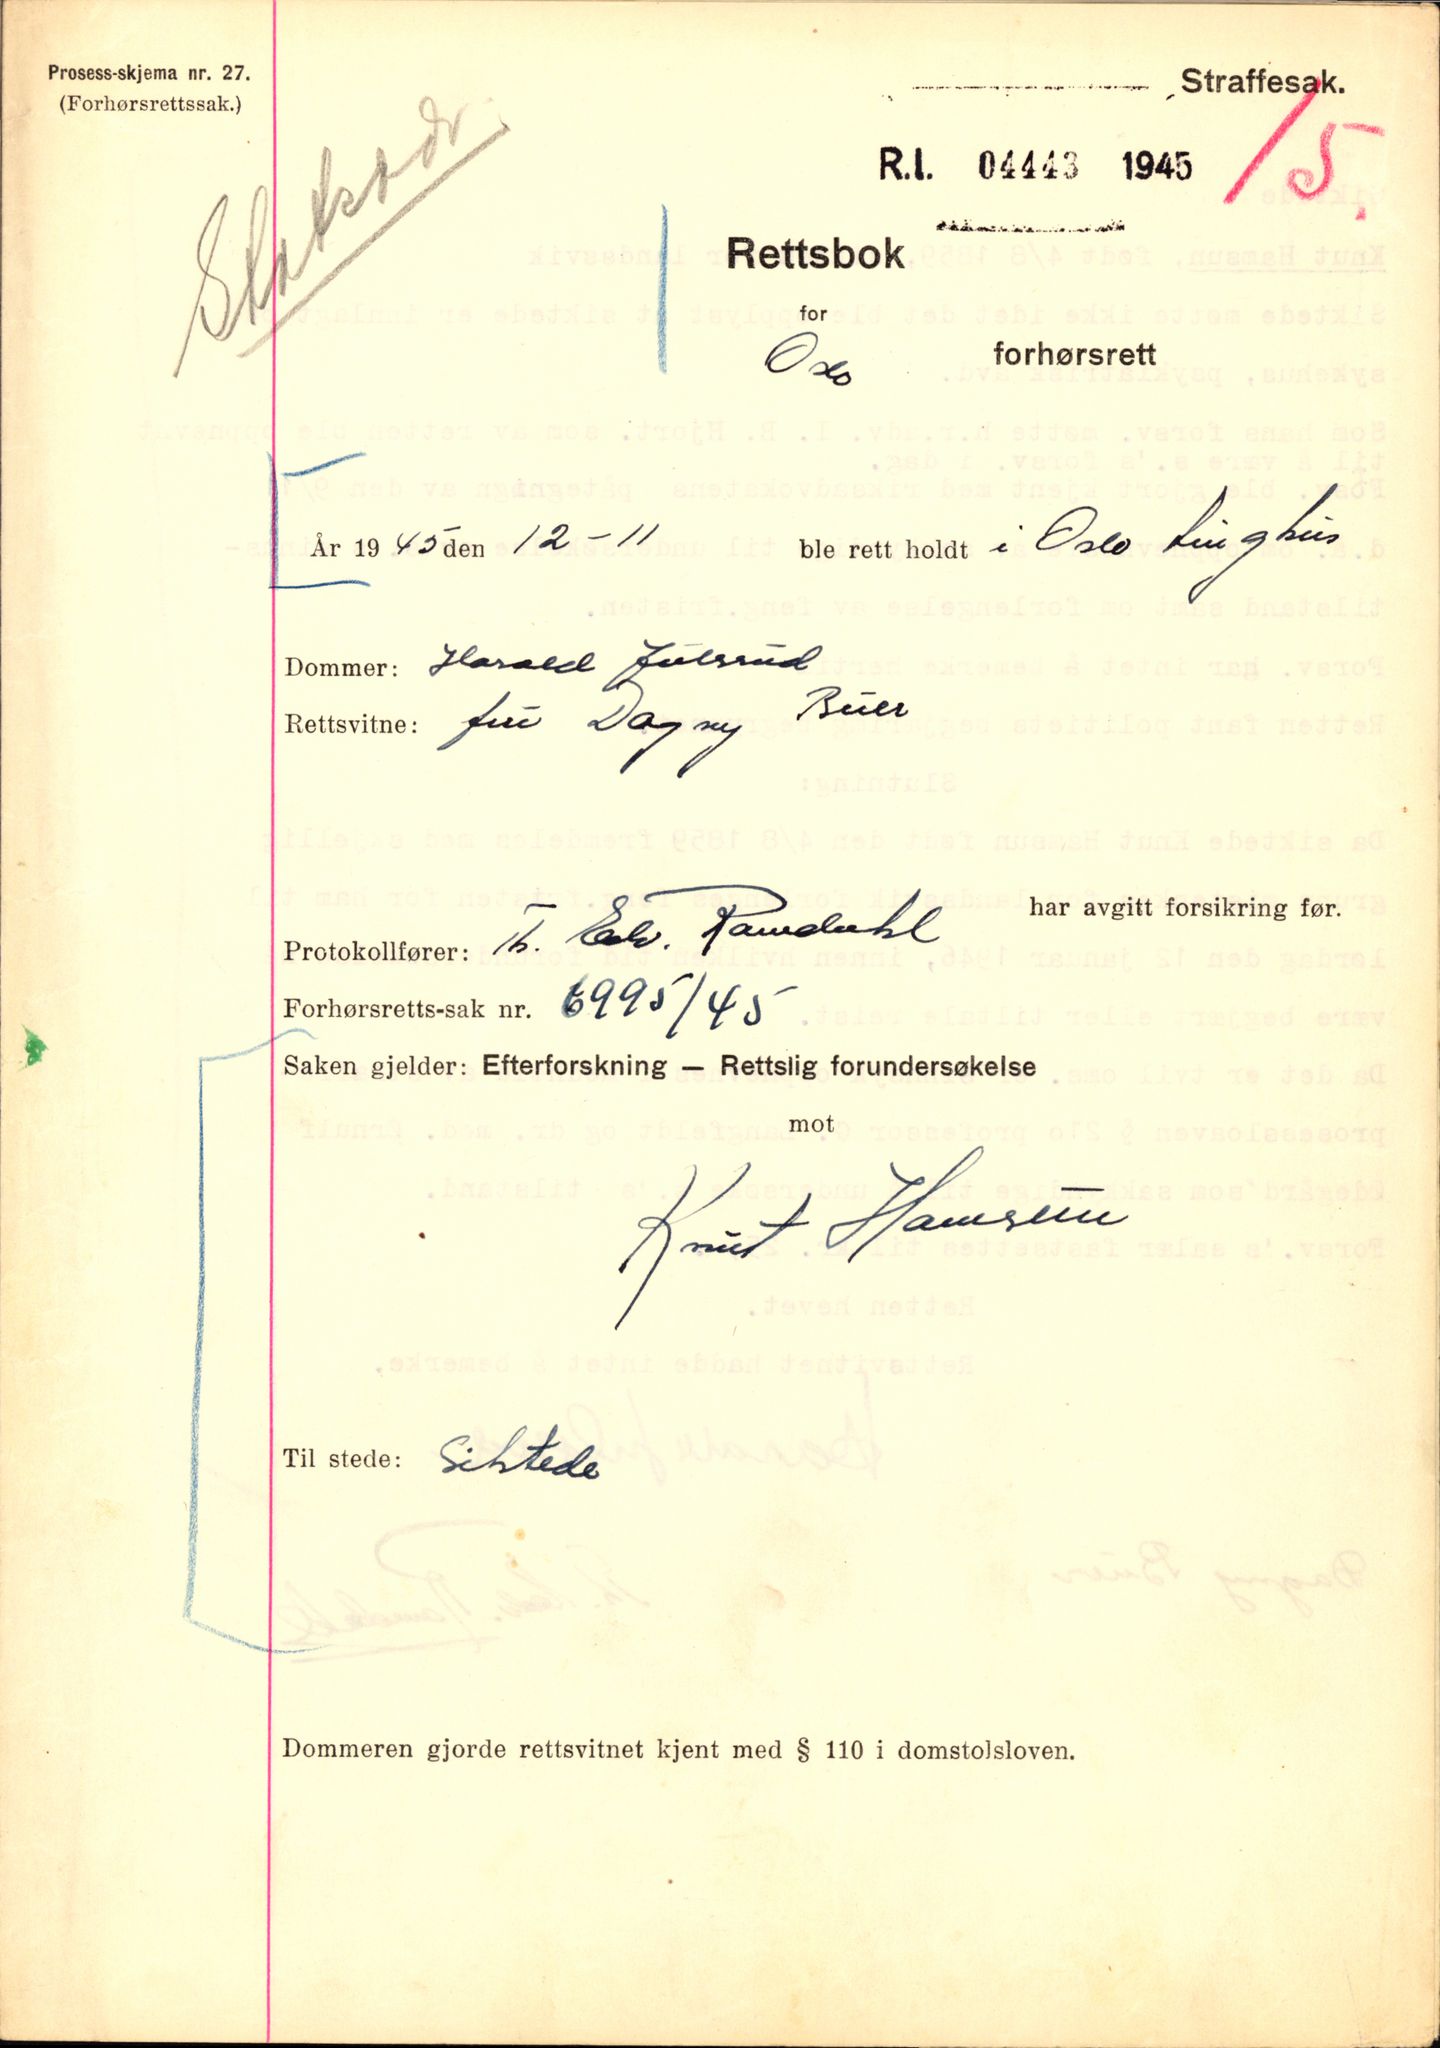 Prosess-skjema nr. 27.
(Forhørsrettssak.)
Straffesak.
R.I. 04443 1945
15
Rettsbok
for
Oslo forhørsrett
År 1945 den 12-11 ble rett holdt i Oslo tinghus
Dommer: Harald Julsrud
Rettsvitne: fru Dagny Buer
har avgitt forsikring før.
Protokollfører: Th. Edv. Ramdahl
Forhørsretts-sak nr. 6995/45
Saken gjelder: Efterforskning — Rettslig forundersøkelse
mot
Knut Hamsun
Til stede: Siktede
Dommeren gjorde rettsvitnet kjent med § 110 i domstolsloven.